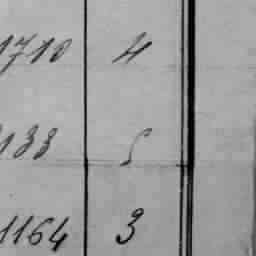 1710 4
133 5
1164 3